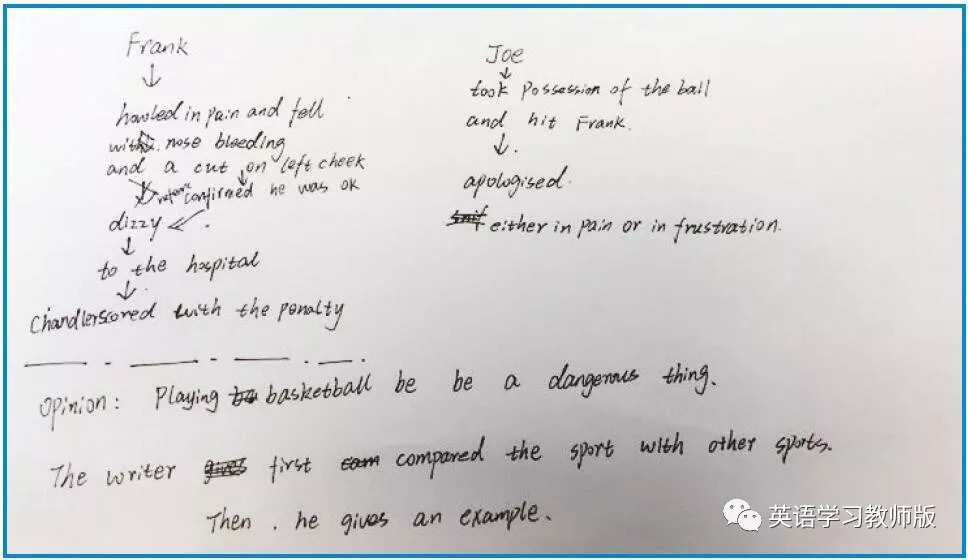 Frank
howled in pain and fell
with nose bleeding
and a cut on left cheek
confirmed he was ok
dizzy
to the hospital
Chandler scored with the penalty
Joe
took possession of the ball
and hit Frank.
apologised.
either in pain or in frustration.
Opinion: Playing basketball be be a dangerous thing.
The writer first compared the sport with other sports.
Then, he gives an example.
英语学习教师版